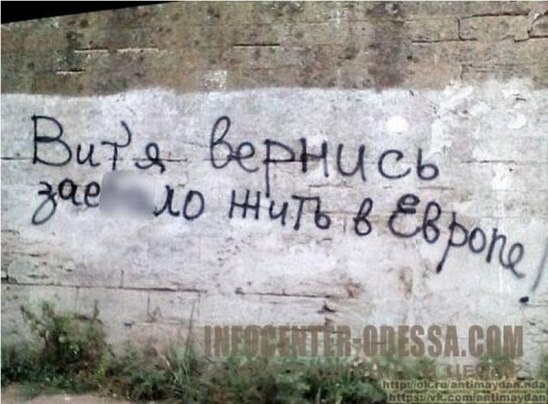 Витя вернись
зае ло жить в Европе!
INFOCENTER-ODESSA.COM
http://ok.ru/antimaydan.nda
https://vk.com/antimaydan